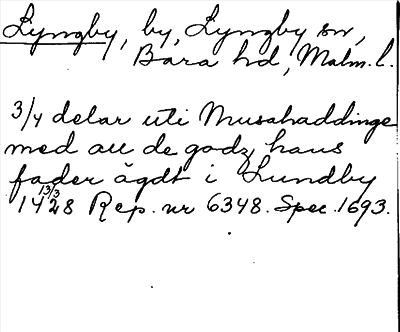 Lyngby, by, Lyngby sn,
Bara hd, Malm. l.
3/4 delar uti Musahaddinge
med all de godz hans
fader ägdt i Lundby
1428 13/3 Rep. nr 6348. Spec. 1693.